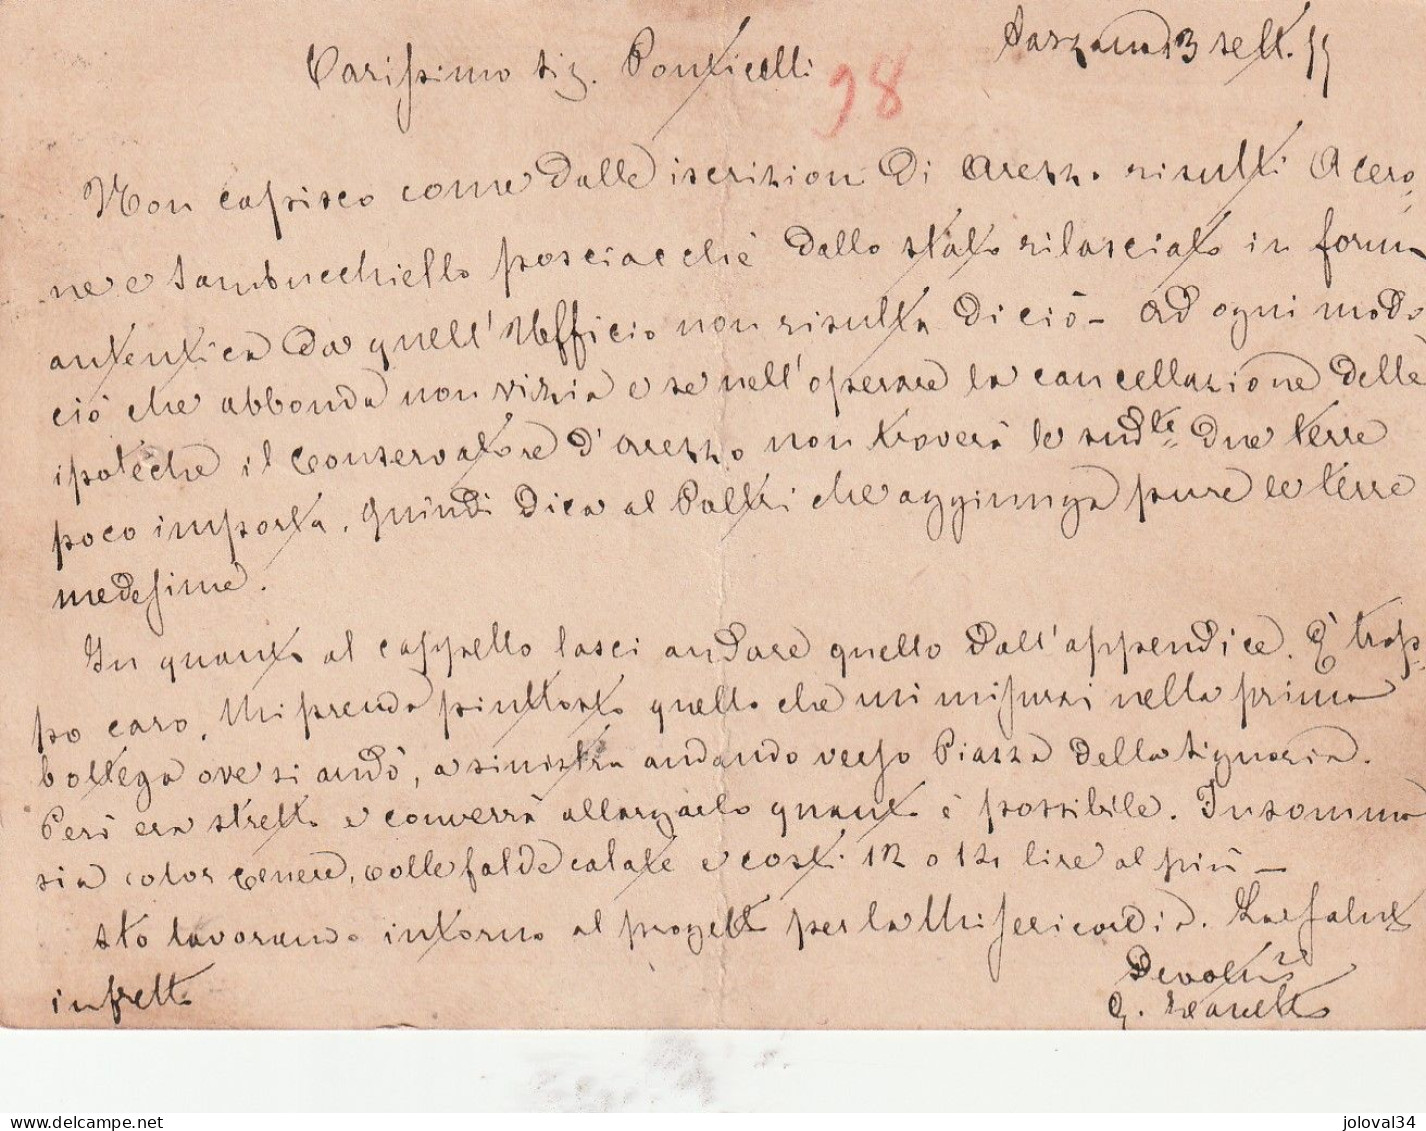 Sarzana 13 sett.
Carissimo sig. Ponticelli
98
Non capisco come dalle iscrizioni di Arezzo risulti Acero-
ne e Sambucchiello posciacchè dallo stato rilasciato in forma
autentica da quell'Ufficio non risulta di ciò - Ad ogni modo
ciò che abbonda non vizia e se nell'operare la cancellazione delle
ipoteche il conservatore d'Arezzo non troverà le sudte due terre
poco importa. Quindi dica al Poltri che aggiunga pure le terre
medesime.
In quanto al cappello lasci andare quello dall'appendice. È trop-
po caro. Mi prenda piuttosto quello che mi misurai nella prima
bottega ove si andò, a sinistra andando verso Piazza della Signoria.
Però era stretto e converrà allargarlo quanto è possibile. Insomma
sia color cenere, colle falde calate e costi 12 o 14 lire al più -
Sto lavorando intorno al progetto per la Misericordia. La saluto
in fretta
Devotmo